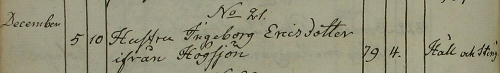 No 21.
December 5 10 Hustru Ingeborg Ericsdotter
ifrån Högsjön 79 4. Håll och Sting